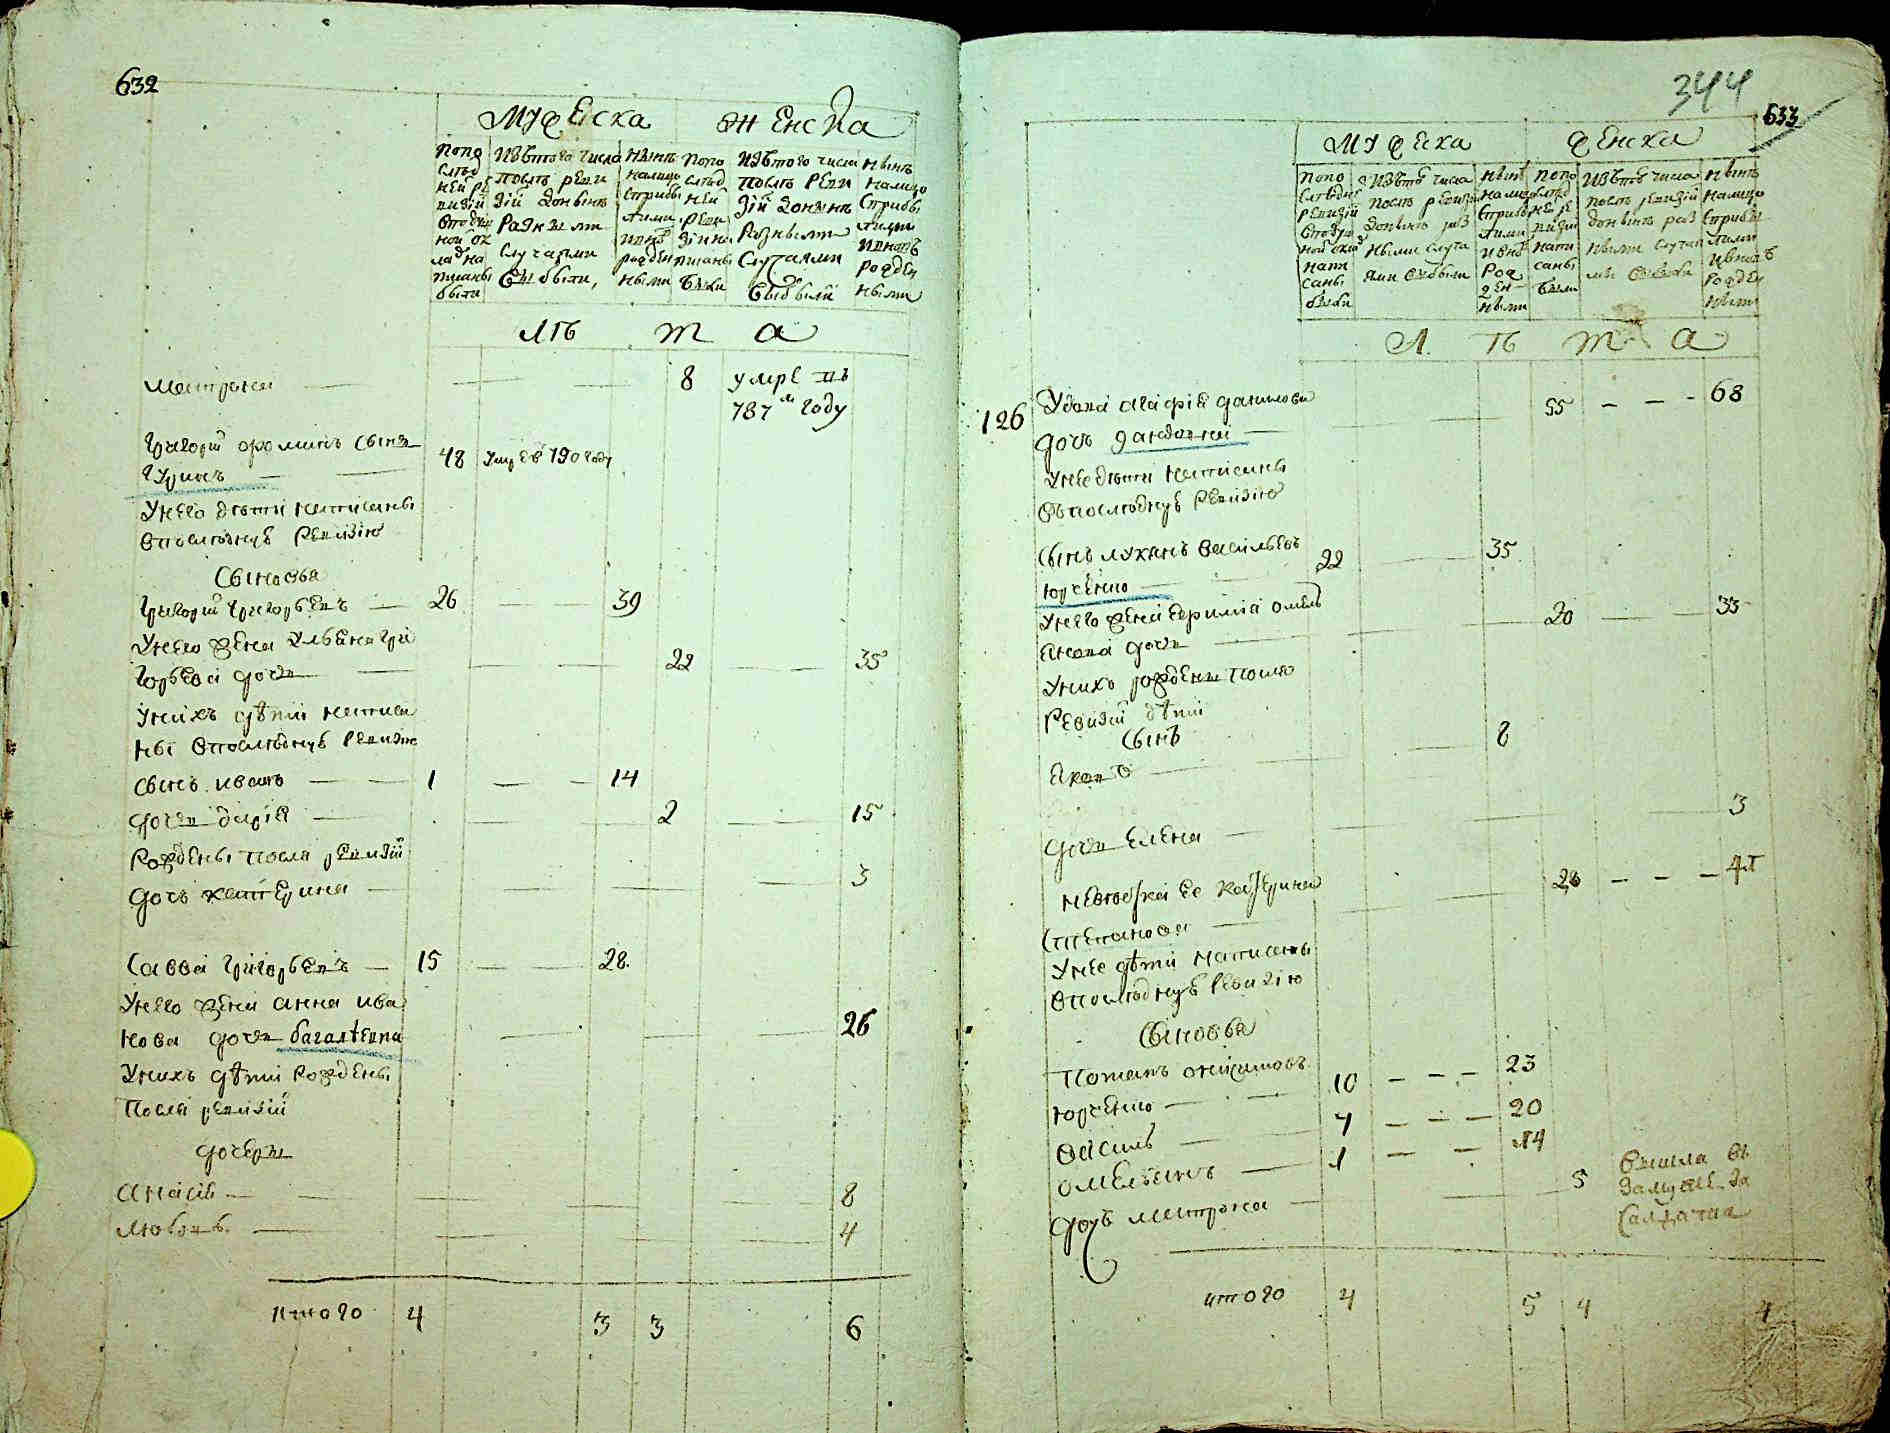 632
МУЖЕСКА ЖЕНСКА
По по следней ревизий в подушной оклад написаны были
Изъ того числа после реви зий до ныне разными случаями выбыли,
Ныне налицо с прибылими и вновь рожденными
По последней ревизии написаны были
Изъ того числа после реви зий до ныне разными случаями выбыли
Ныне налицо с прибылими и вновь рожденными
ЛѢ Т А
матрона 8 умре въ
787 м году
Григорий Фоминъ сынъ
48 умре в 790 году
Гуринъ
У него дети написаны
в последную ревизию
Сыновья
Григорий Григорьевъ 26 39
У него жена Ульяна Гри
горьева дочь 22 35
У нихъ дѣти написа
ны в последную ревизию
сынъ иванъ 1 14
дочь дарія 2 15
Рождены после ревизий
дочь катерина 3
Савва Григорьевъ 15 28
У него жена анна ива
нова дочь багалѣевна 26
У нихъ дѣти рождены
после ревизий
дочери
Анасія 8
Любовь 4
итого 4 3 3 6
344
633
МУЖЕСКА ЖЕНСКА
По последней ревизий в подушной оклад написаны были
Изъ того числа после ревизий до ныне разными случаями выбыли
Ныне налицо с прибылими и вновь рожденными
По последней ревизий написаны были
Изъ того числа после ревизий до ныне разными случаями выбыли
Ныне налицо с прибылими и вновь рожденными
Л Ѣ Т А
126 Удова агафія данилова 55 68
дочь
У нее дети написаны
в последную ревизию
Сынъ лукянъ васильевъ 22 35
юрченко
У него жена ефимія омель
янова дочь 20 33
У нихъ рождены после
ревизий дѣти
сынъ 8
яковъ
дочь елена 3
невестка ее катерина 28 41
Степанова
У нее дѣти написаны
в последную ревизию
Сыновья
Потапъ 10 23
юрченко
василь 7 20
омельянъ 1 14
дочь матрона 5 вышла въ
замужье за
салдата
итого 4 5 4 4